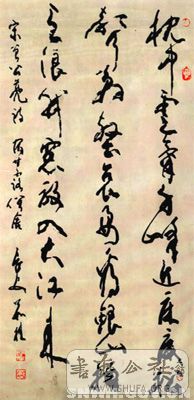 枕中雲氣千峰近床底
松聲萬壑哀要看銀山拍
天浪開窗放入大江来
宋曾公亮詩宿甘露僧舍
书法公社
WWW.SHUFA.ORG